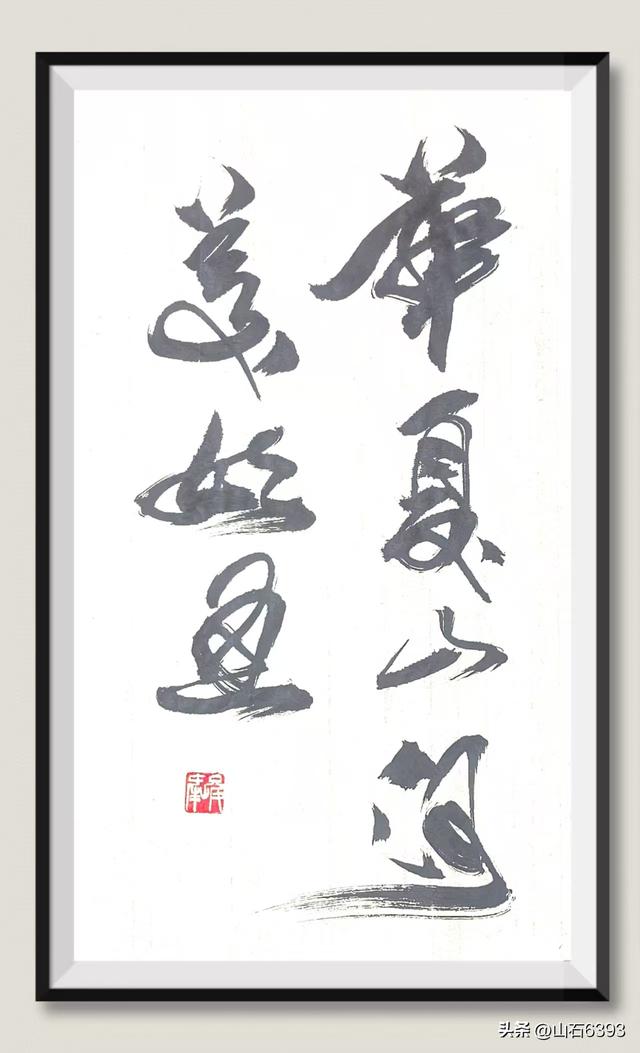 華夏山河
美如画
头条 @山石6393